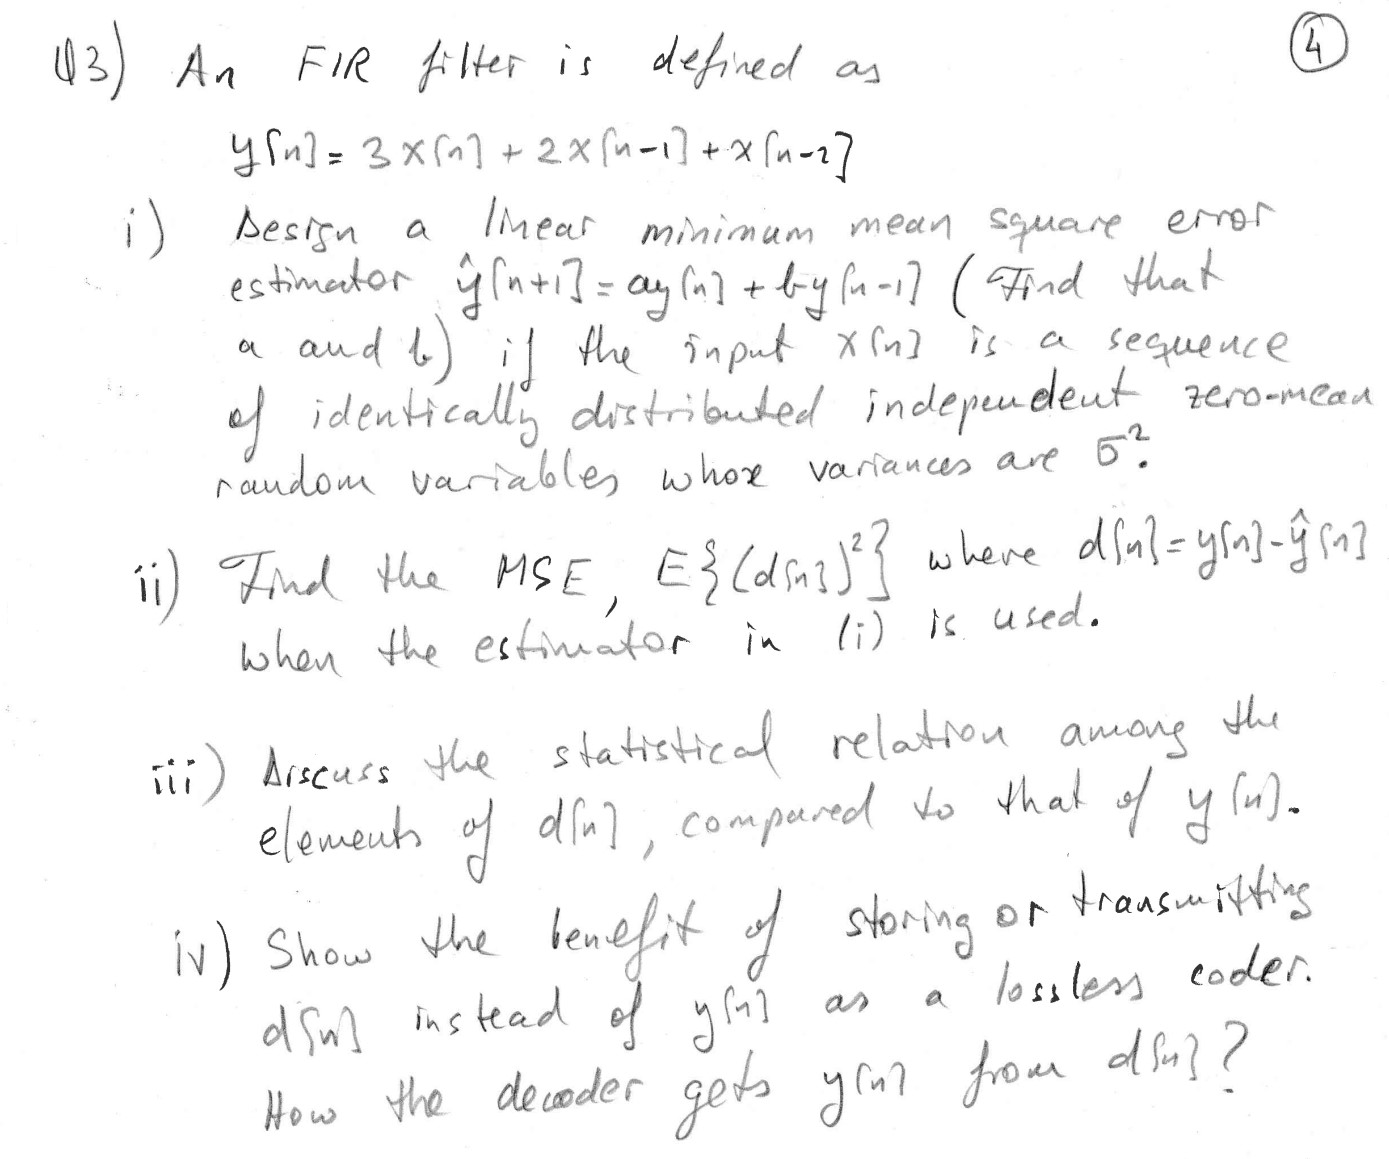 Q3) An FIR filter is defined as
4
y[n] = 3x[n] + 2x[n-1] + x[n-2]
i) Design a linear minimum mean square error
estimator ŷ[n+1] = ay[n] + by[n-1] (Find that
a and b) if the input x[n] is a sequence
of identically distributed independent zero-mean
random variables whose variances are σ².
ii) Find the MSE, E{(d[n])²} where d[n] = y[n] - ŷ[n]
when the estimator in (i) is used.
iii) Discuss the statistical relation among the
elements of d[n], compared to that of y[n].
iv) Show the benefit of storing or transmitting
d[n] instead of y[n] as a lossless coder.
How the decoder gets y[n] from d[n]?